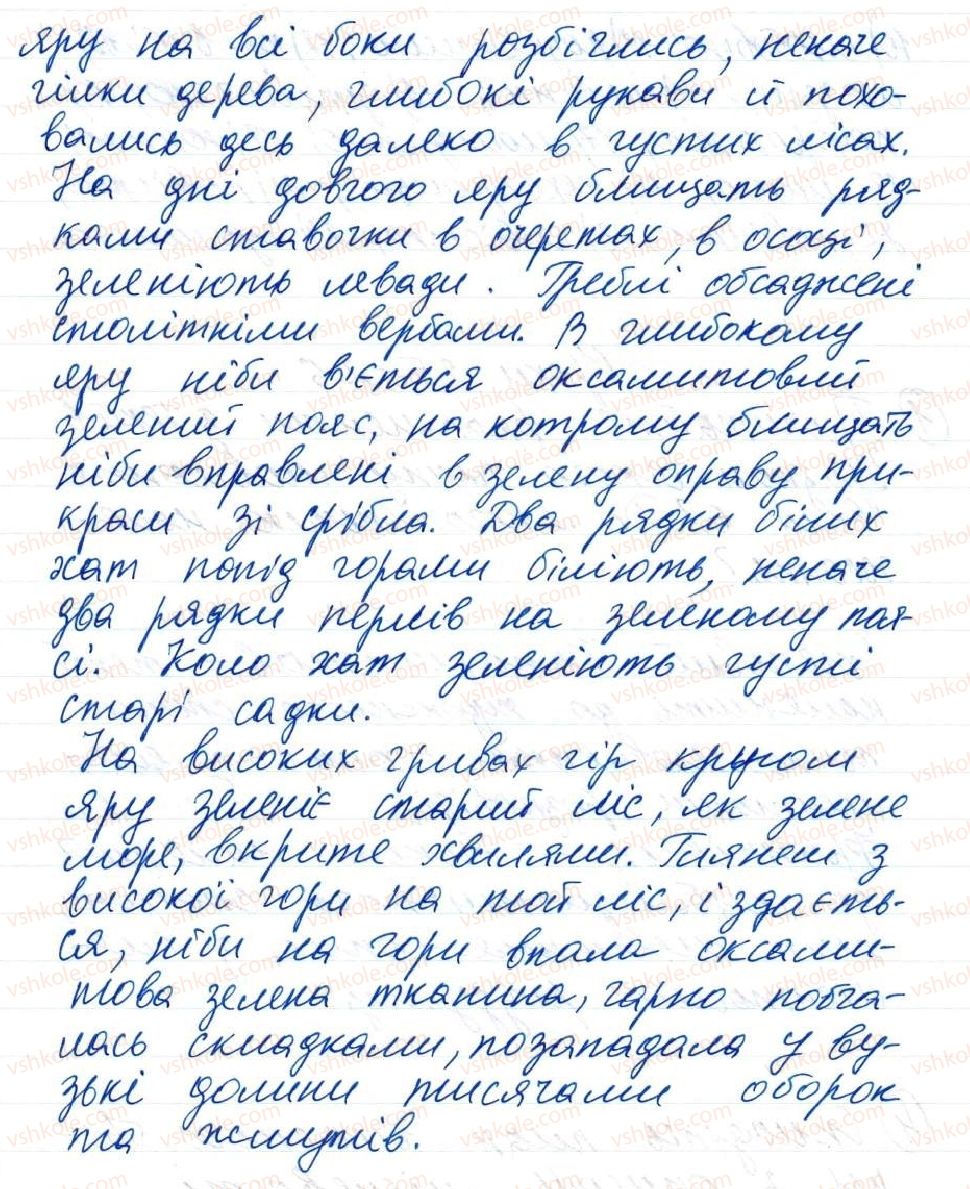 яру на всі боки розбіглись, неначе
гілки дерева, глибокі рукави й похо-
вались десь далеко в густих лісах.
На дні довгого яру блищать ряд-
ками ставочки в очеретах, в осоці,
зеленіють левади. Греблі обсаджені
столітніми вербами. В глибокому
яру ніби в'ється оксамитовий
зелений пояс, на котрому блищать
ніби вправлені в зелену оправу при-
краси зі срібла. Два рядки білих
хат попід горами біліють, неначе
два рядки перлів на зеленому поя-
сі. Коло хат зеленіють густі
старі садки.
На високих гривах гір кругом
яру зеленіє старий ліс, як зелене
море, вкрите хвилями. Глянеш з
високої гори на той ліс, і здаєть-
ся, ніби на гори впала оксами-
това зелена тканина, гарно побга-
лась складками, позападала у ву-
зькі долини тисячами оборок
та жмутів.